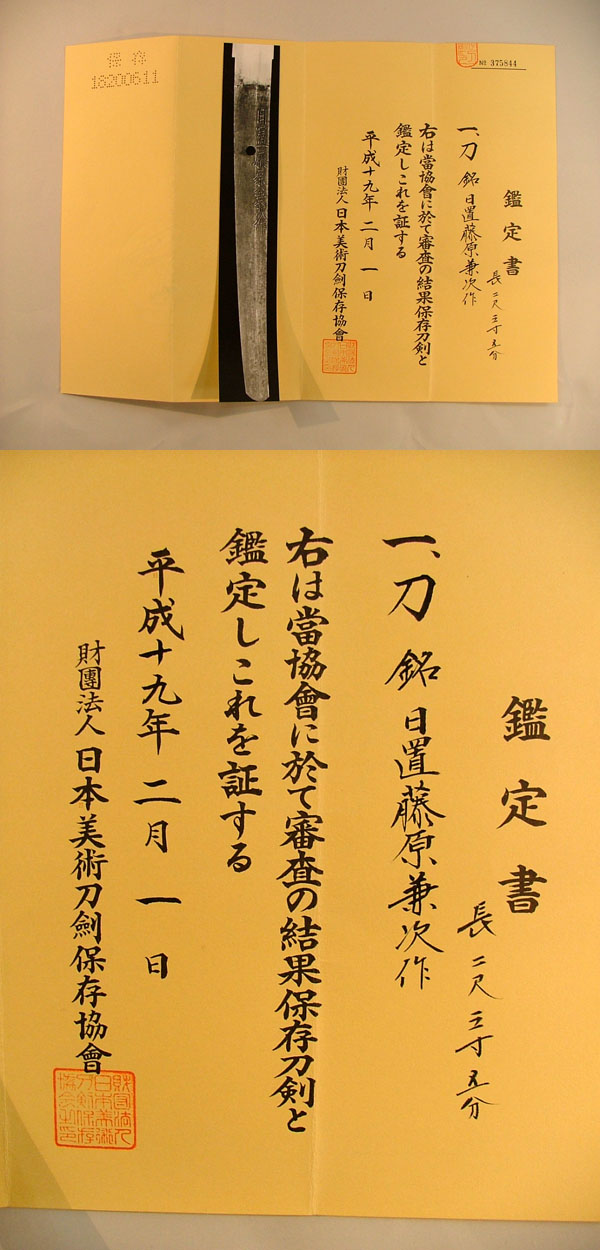 保存
18200611
№ 375844
鑑定書
一、刀 銘 日置藤原兼次作
長 二尺三寸五分
右は當協會に於て審査の結果保存刀剣と
鑑定しこれを証する
平成十九年 二月 一日
財團法人 日本美術刀劍保存協會
鑑定書
一、刀 銘 日置藤原兼次作
長 二尺三寸五分
右は當協會に於て審査の結果保存刀剣と
鑑定しこれを証する
平成十九年 二月 一日
財團法人 日本美術刀劍保存協會